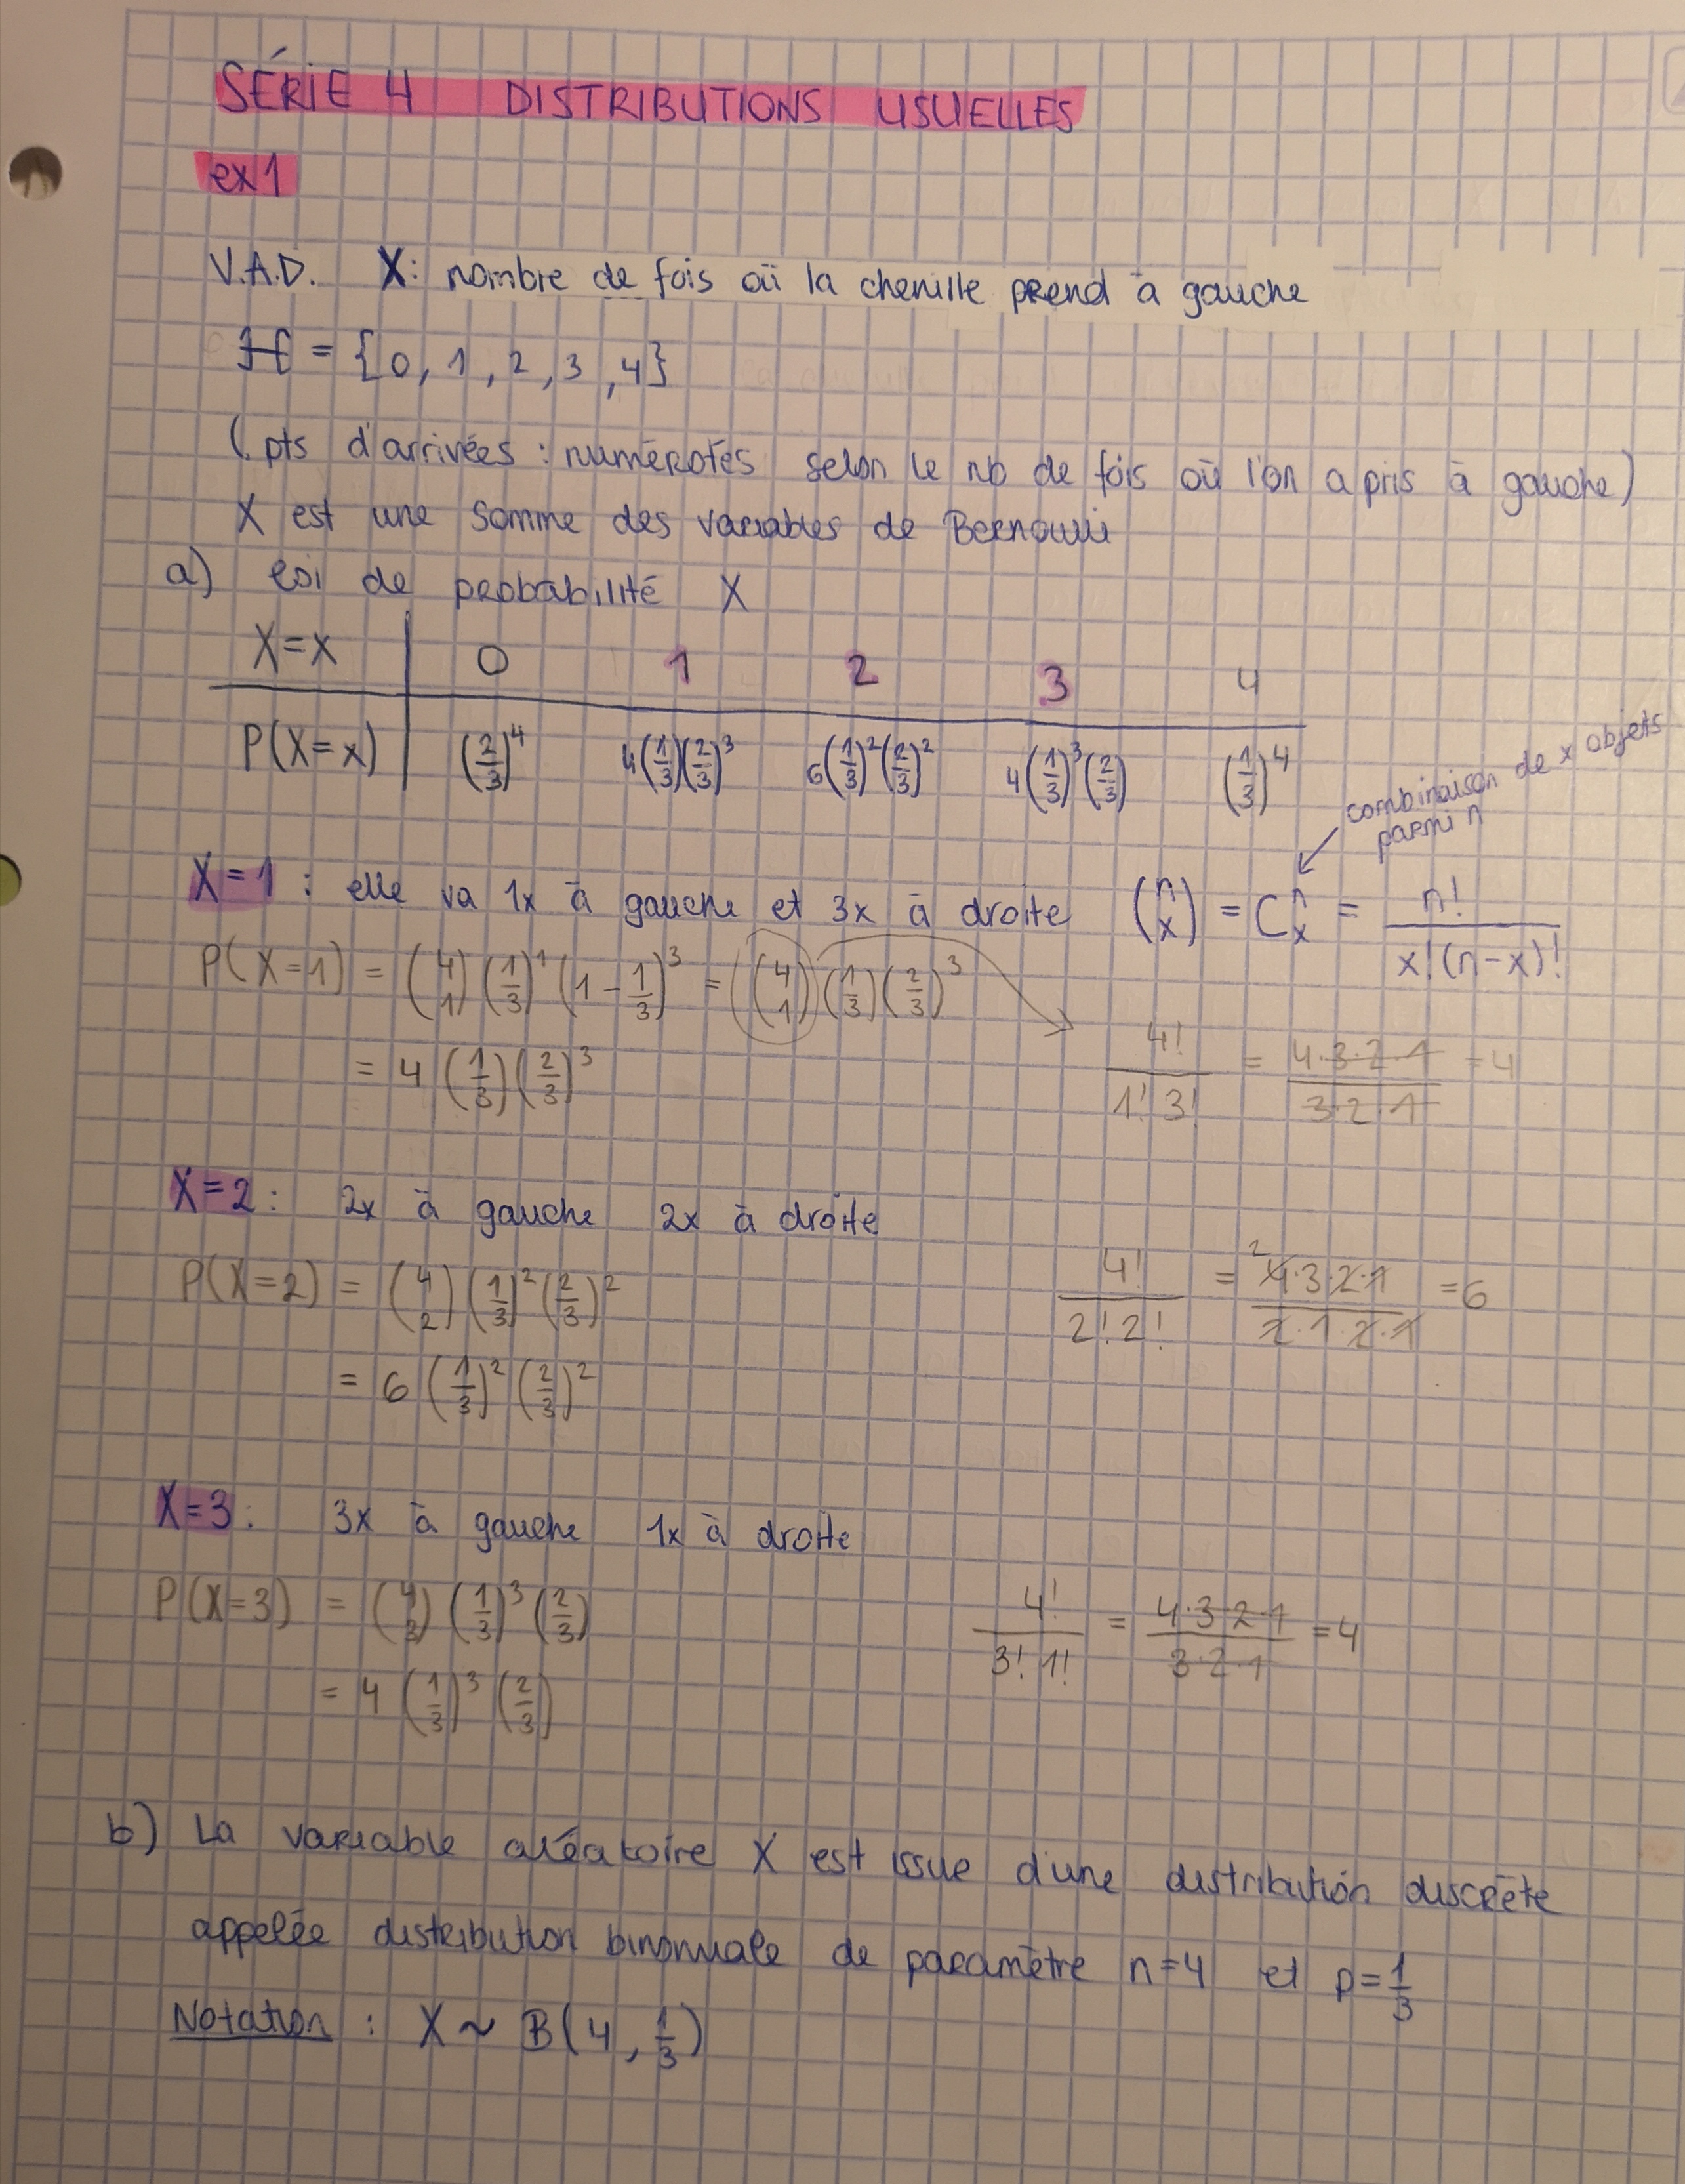 SÉRIE 4 DISTRIBUTIONS USUELLES
ex 1
V.A.D. X: nombre de fois où la chenille prend à gauche
H = {0, 1, 2, 3, 4}
(pts d'arrivées : numérotés selon le nb de fois où l'on a pris à gauche)
X est une somme des variables de Bernoulli
a) loi de probabilité X
X=x | 0 1 2 3 4
P(X=x) | (2/3)^4 4(1/3)(2/3)^3 6(1/3)^2(2/3)^2 4(1/3)^3(2/3) (1/3)^4
combinaison de x objets
parmi n
X=1 : elle va 1x à gauche et 3x à droite (n x) = C^n_x = n!/x!(n-x)!
P(X=1) = (4 1)(1/3)^1(1-1/3)^3 = (4 1)(1/3)(2/3)^3
= 4(1/3)(2/3)^3 4!/1!3! = 4·3·2·1/3·2·1 = 4
X=2 : 2x à gauche 2x à droite
P(X=2) = (4 2)(1/3)^2(2/3)^2 4!/2!2! = 4·3·2·1/2·1·2·1 = 6
2
= 6(1/3)^2(2/3)^2
X=3 : 3x à gauche 1x à droite
P(X=3) = (4 3)(1/3)^3(2/3) 4!/3!1! = 4·3·2·1/3·2·1 = 4
= 4(1/3)^3(2/3)
b) La variable aléatoire X est issue d'une distribution discrète
appelée distribution binomiale de paramètre n=4 et p=1/3
Notation : X ~ B(4, 1/3)